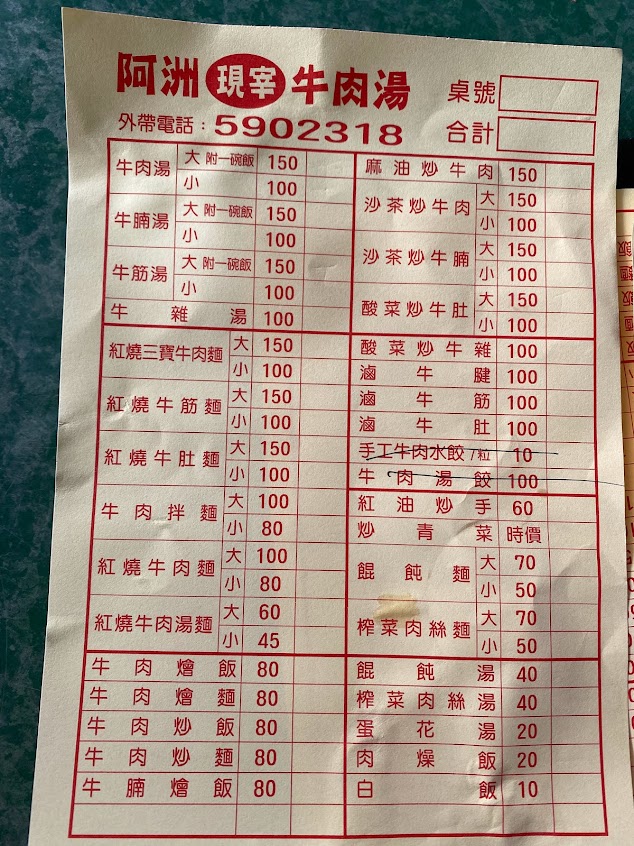 阿洲 現宰 牛肉湯 桌號
外帶電話：5902318 合計
牛肉湯 大 附一碗飯 150
小 100
牛腩湯 大 附一碗飯 150
小 100
牛筋湯 大 附一碗飯 150
小 100
牛雜湯 100
紅燒三寶牛肉麵 大 150
小 100
紅燒牛筋麵 大 150
小 100
紅燒牛肚麵 大 150
小 100
牛肉拌麵 大 100
小 80
紅燒牛肉麵 大 100
小 80
紅燒牛肉湯麵 大 60
小 45
牛肉燴飯 80
牛肉燴麵 80
牛肉炒飯 80
牛肉炒麵 80
牛腩燴飯 80
麻油炒牛肉 150
沙茶炒牛肉 大 150
小 100
沙茶炒牛腩 大 150
小 100
酸菜炒牛肚 大 150
小 100
酸菜炒牛雜 100
滷牛腱 100
滷牛筋 100
滷牛肚 100
手工牛肉水餃/粒 10
牛肉湯餃 100
紅油炒手 60
炒青菜 時價
餛飩麵 大 70
小 50
榨菜肉絲麵 大 70
小 50
餛飩湯 40
榨菜肉絲湯 40
蛋花湯 20
肉燥飯 20
白飯 10